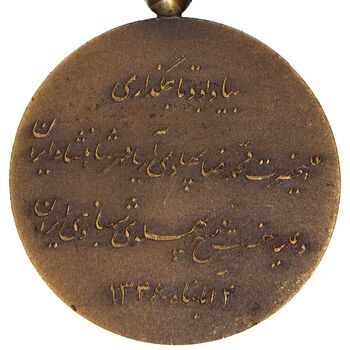 بیاد بود تاجگذاری
اعلیحضرت محمد رضا پهلوی آریامهر شاهنشاه ایران
و علیاحضرت فرح پهلوی شهبانوی ایران
۴ آبانماه ۱۳۴۶